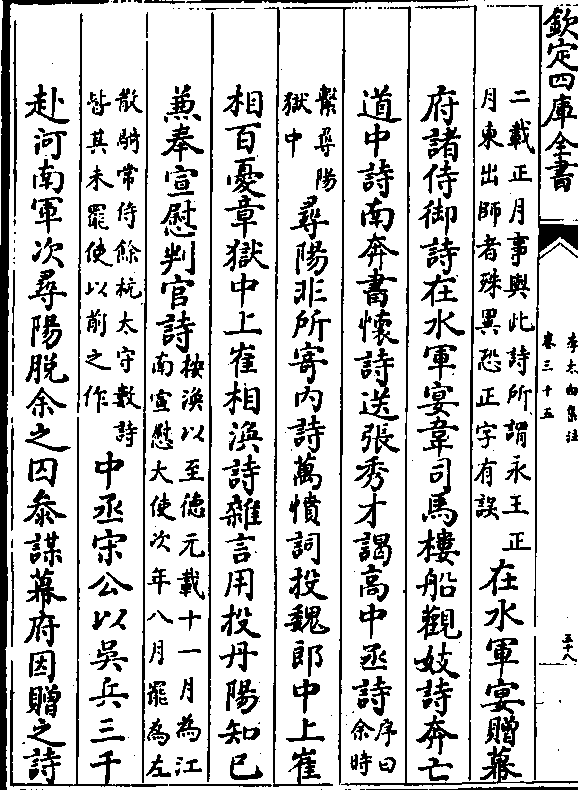 欽定四庫全書
李太白集注
卷三十五
五十八
二載正月事與此詩所謂永王正
月東出師者殊異恐正字有誤
在水軍宴贈幕
府諸侍御詩在水軍宴韋司馬樓船觀妓詩奔亡
道中詩南奔書懷詩送張秀才謁高中丞詩
序曰
余時
繫尋陽
獄中
尋陽非所寄内詩萬憤詞投魏郎中上崔
相百憂章獄中上崔相渙詩雜言用投丹陽知已
兼奉宣慰判官詩
按渙以至德元載十一月為江
南宣慰大使次年八月罷為左
散騎常侍餘杭太守數詩
皆其未罷使以前之作
中丞宋公以吳兵三千
赴河南軍次尋陽脫余之囚叅謀幕府因贈之詩